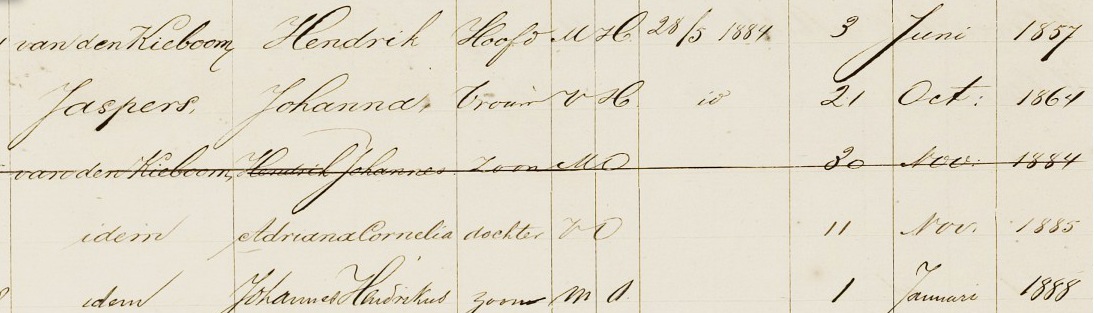 van den Kieboom, Hendrik Hoofd M H. 28/5 1884 3 Juni 1857
Jaspers, Johanna, Vrouw V H. id 21 Oct: 1864
van den Kieboom, Hendrik Johannes Zoon M O 30 Nov. 1884
idem Adriana Cornelia dochter V O 11 Nov. 1885
idem Johannes Hendrikus zoon m O 1 Januari 1888